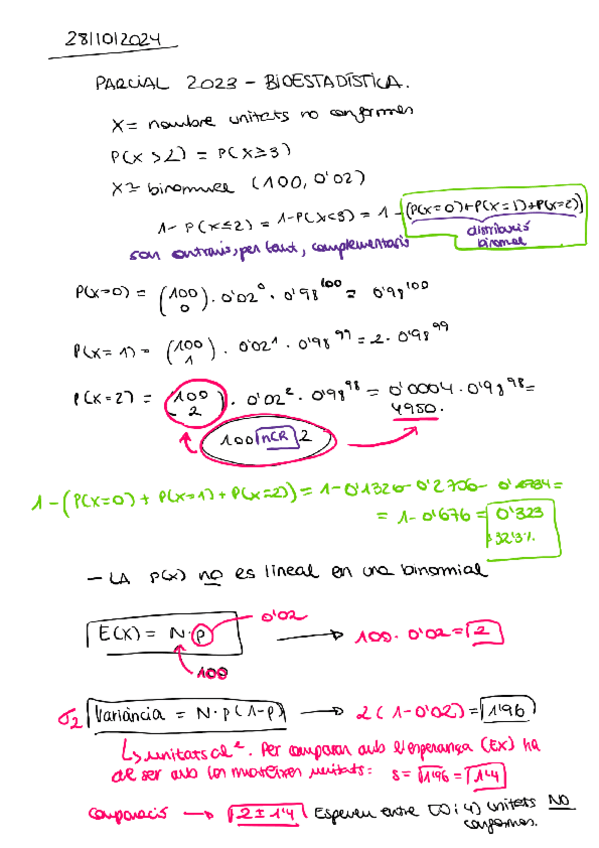 28/10/2024
PARCIAL 2023 - BIOESTADÍSTICA.
X = nombre unitats no conformes
P(X > 2) = P(X ≥ 3)
X ≃ binomial (100, 0'02)
1 - P(X ≤ 2) = 1 - P(X < 3) = 1 - (P(X = 0) + P(X = 1) + P(X = 2))
distribució
binomial
son contraris, per tant, complementaris
P(X = 0) = (100 0) · 0'02⁰ · 0'98¹⁰⁰ = 0'98¹⁰⁰
P(X = 1) = (100 1) · 0'02¹ · 0'98⁹⁹ = 2 · 0'98⁹⁹
P(X = 2) = (100 2) · 0'02² · 0'98⁹⁸ = 0'0004 · 0'98⁹⁸ =
4950.
100 nCR 2
1 - (P(X = 0) + P(X = 1) + P(X = 2)) = 1 - 0'1326 - 0'2706 - 0'2734 =
= 1 - 0'676 = 0'323
32'3%
- LA P(X) no es lineal en una binomial
E(X) = N · p
0'02
100
100 · 0'02 = 2
σ2 Variància = N · p (1 - p) → 2 (1 - 0'02) = 1'96
↳ unitats al ². Per comparar amb l'esperança (EX) ha
de ser amb les mateixes unitats: s = √1'96 = 1'4
comparació → 2 ± 1'4 Espereu entre (0 i 4) unitats NO
conformes.